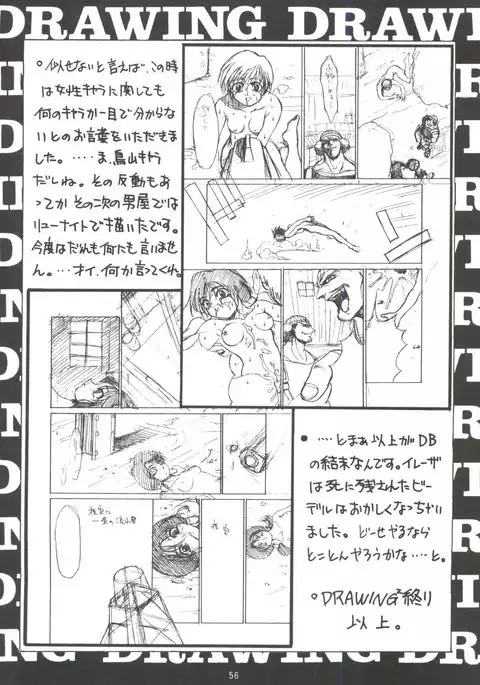 DRAWING DRAWING
。似せないと言えば、この時
は女性キャラに関しても
何のキャラか一目で分からな
いとのお言葉をいただきま
した。……ま、鳥山キャラ
だしね。その反動もあ
ってか その次の男屋では
リューナイトで描いたです。
今度はだれも何にも言いませ
ん。…オイ、何か言ってくれ。
●……とまぁ以上がDB
の結末なんです。イレーザ
は死に残されたビー
デルはおかしくなっちゃい
ました。どーせやるなら
とことんやろうかな……と。
。DRAWING終り
以上。
DRAWING DRAWING
56